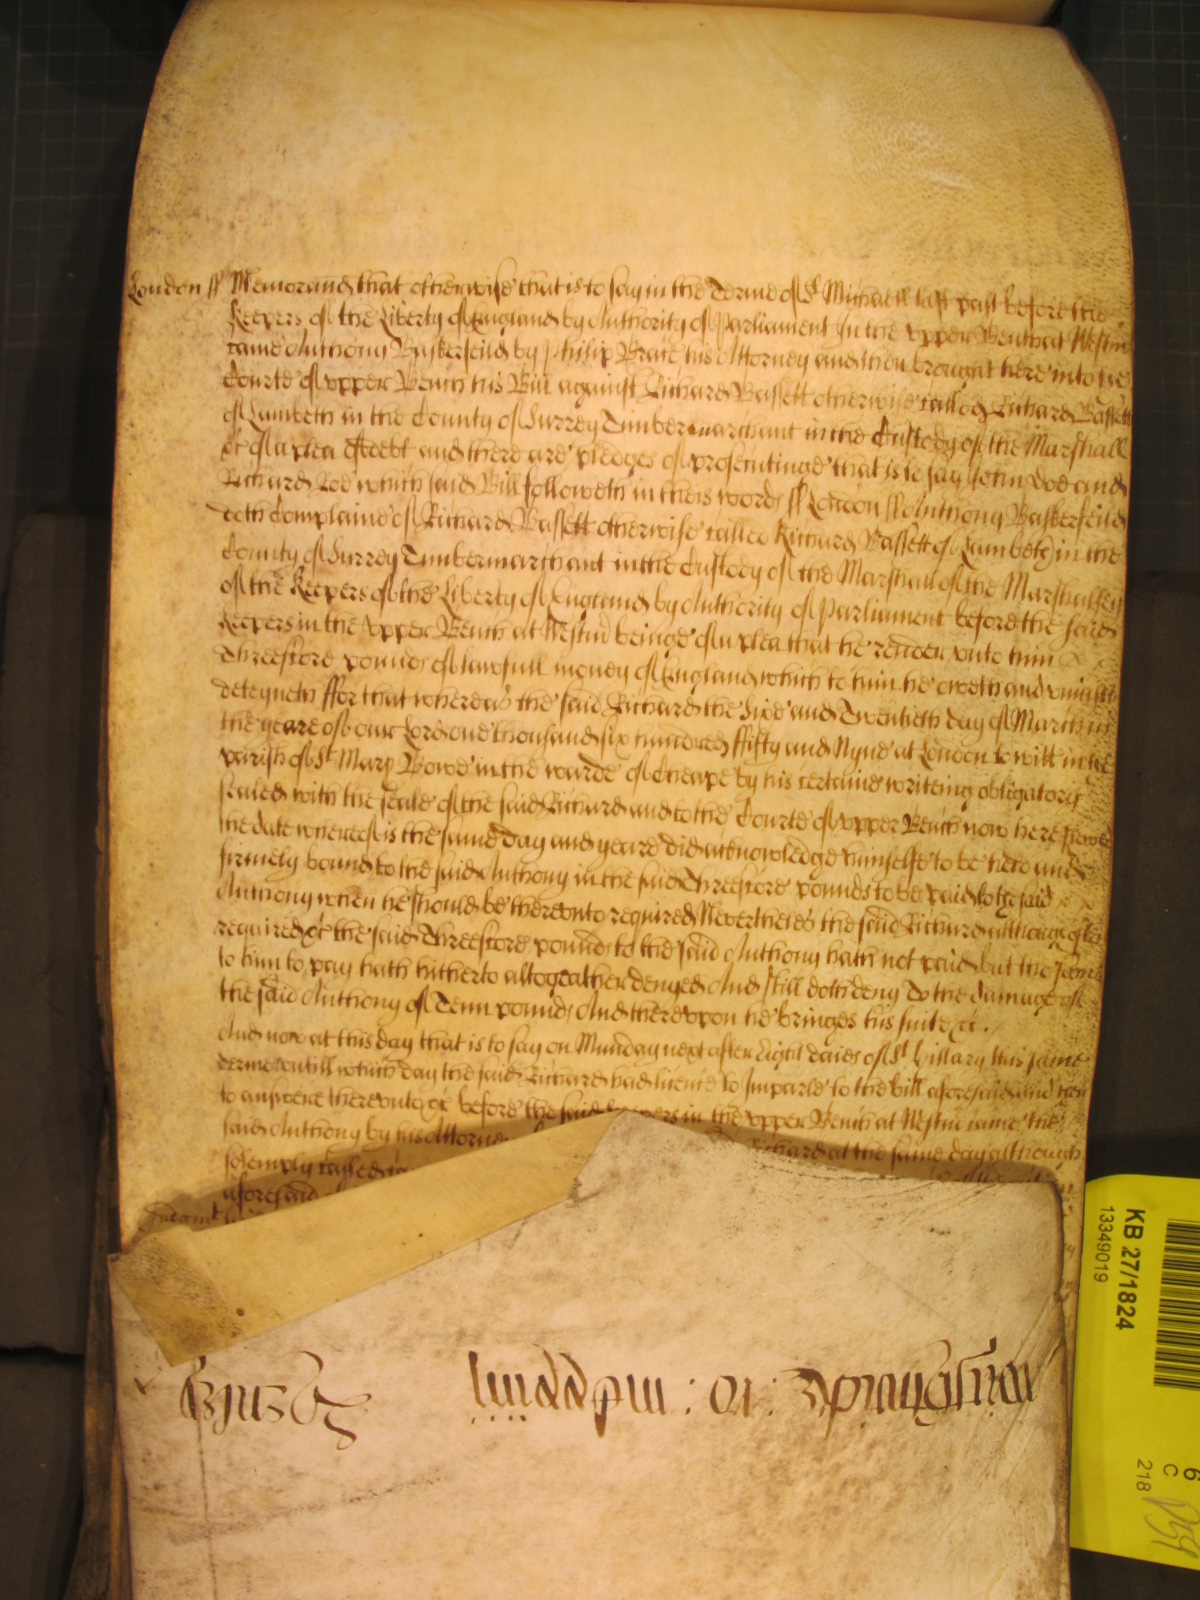 London ss Memorand that otherwise that is to say in the Terme of St Michaell last past before the
Keepers of the Liberty of England by Authority of Parliament In the upper Bench at Westm
came Anthony Baskerfeild by Philip his Attorney and then brought here into the
Courte of upper Bench his Bill against Richard Bassett otherwise called Richard Bassett
of Lambeth in the County of Surrey Timbermarchant in the Custody of the Marshall
&c of a plea of debt and there are pledges of prosecutinge that is to say John Doe and
Richard Roe which said Bill followeth in theis words ss London ss Anthony Baskerfeild
doth Complaine of Richard Bassett otherwise called Richard Bassett of Lambeth in the
County of Surrey Timbermarchant in the Custody of the Marshall of the Marshallsey
of the Keepers of the Liberty of England by Authority of Parliament before the said
Keepers in the upper Bench at Westm beinge of a plea that he render unto him
Threescore pounds of lawfull money of England which to him he oweth and uniustly
deteyneth ffor that whereas the said Richard the Sixe and Twentieth day of March in
the yeare of our Lord one thousand six hundred ffifty and Nyne at London to witt in the
parish of St Mary Bowe in the warde of Cheape by his certaine writeing obligatory
sealed with the seale of the said Richard and to the Courte of upper Bench now here shewed
the date whereof is the same day and yeare did acknowledge himselfe to be held and
firmely bound to the said Anthony in the said Threescore pounds to be paid to the said
Anthony when he should be thereunto required Neverthelesse the said Richard although often
required &c the said Threescore pounds to the said Anthony hath not paid but the same
to him to pay hath hitherto altogeather denyed And still doth deny To the damage of
the said Anthony of Tenn pounds And thereupon he bringes his suite &c.
And now at this day that is to say on Munday next after Eight daies of St Hillary this same
Terme untill which day the said Richard had licence to Imparle to the bill aforesaid and then
to answere thereunto &c before the said Keepers in the upper Bench at Westm came the
said Anthony by his Attorney Richard at the same day although
solemply called
aforesaid
Judgmt
KB 27/1824
13349019
6
C
218